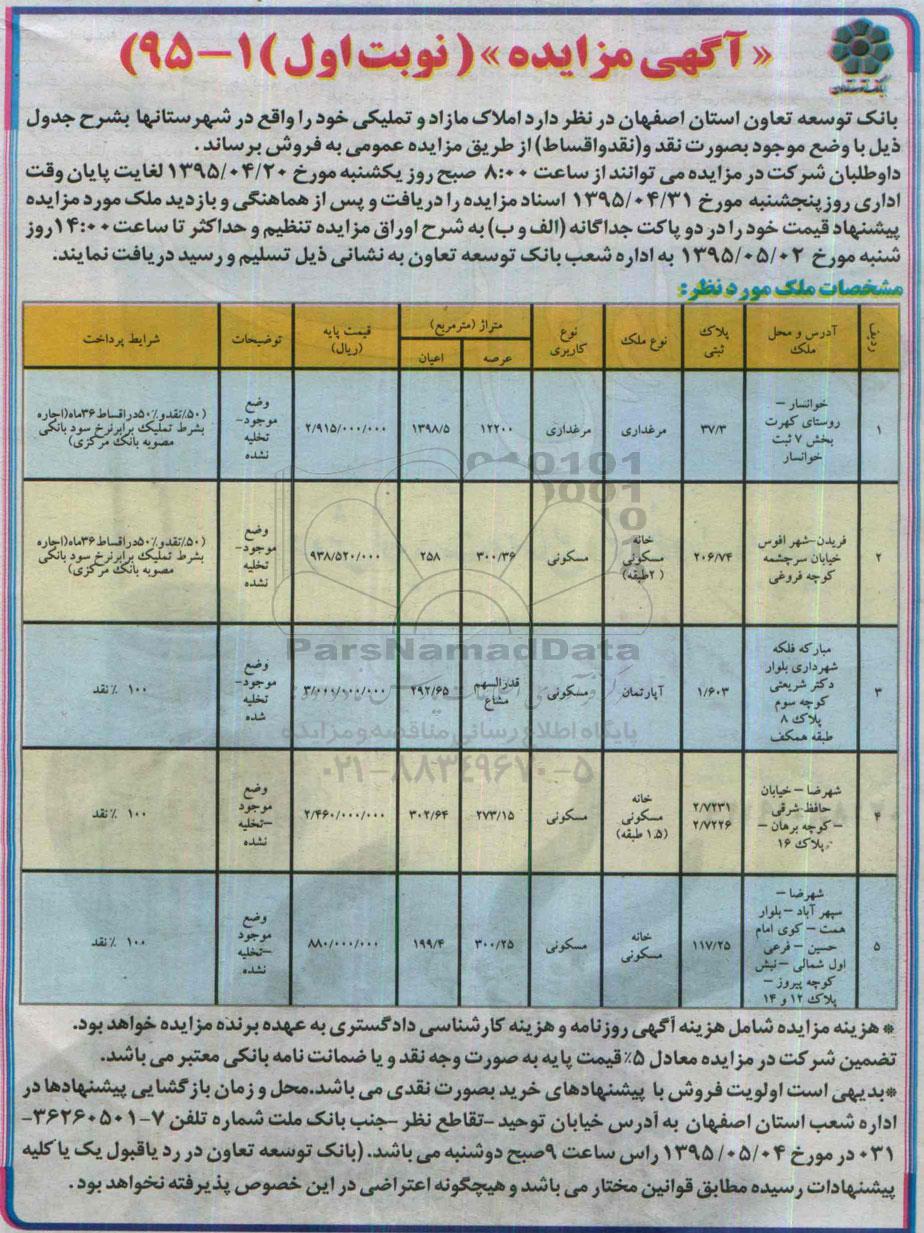 «آگهی مزایده» (نوبت اول) ۱-۹۵)
بانک توسعه تعاون استان اصفهان در نظر دارد املاک مازاد و تملیکی خود را واقع در شهرستانها بشرح جدول
ذیل با وضع موجود بصورت نقد و(نقدواقساط) از طریق مزایده عمومی به فروش برساند.
داوطلبان شرکت در مزایده می توانند از ساعت ۸:۰۰ صبح روز یکشنبه مورخ ۱۳۹۵/۰۴/۲۰ لغایت پایان وقت
اداری روز پنجشنبه مورخ ۱۳۹۵/۰۴/۳۱ اسناد مزایده را دریافت و پس از هماهنگی و بازدید ملک مورد مزایده
پیشنهاد قیمت خود را در دو پاکت جداگانه (الف و ب) به شرح اوراق مزایده تنظیم و حداکثر تا ساعت ۱۴:۰۰روز
شنبه مورخ ۱۳۹۵/۰۵/۰۲ به اداره شعب بانک توسعه تعاون به نشانی ذیل تسلیم و رسید دریافت نمایند.
مشخصات ملک مورد نظر:
ردیف
آدرس و محل
ملک
پلاک
ثبتی
نوع ملک
نوع
کاربری
متراژ (مترمربع)
عرصه
اعیان
قیمت پایه
(ریال)
توضیحات
شرایط پرداخت
۱
خوانسار –
روستای کهرت
بخش ۷ ثبت
خوانسار
۳۷/۳
مرغداری
مرغداری
۱۲۲۰۰
۱۳۹۸/۵
۲/۹۱۵/۰۰۰/۰۰۰
وضع
موجود-
تخلیه
نشده
(۵۰٪نقدو۵۰٪دراقساط۳۶ماه(اجاره
بشرط تملیک برابرنرخ سود بانکی
مصوبه بانک مرکزی)
۲
فریدن-شهر افوس
خیابان سرچشمه
کوچه فروغی
۲۰۶/۷۴
خانه
مسکونی
(۲طبقه)
مسکونی
۳۰۰/۳۶
۲۵۸
۹۳۸/۵۲۰/۰۰۰
وضع
موجود-
تخلیه
نشده
(۵۰٪نقدو۵۰٪دراقساط۳۶ماه(اجاره
بشرط تملیک برابرنرخ سود بانکی
مصوبه بانک مرکزی)
۳
مبارکه فلکه
شهرداری بلوار
دکتر شریعتی
کوچه سوم
پلاک ۸
طبقه همکف
۱/۶۰۳
آپارتمان
مسکونی
قدرالسهم
مشاع
۲۹۲/۶۵
۳/۰۰۰/۰۰۰/۰۰۰
وضع
موجود-
تخلیه
شده
۱۰۰ ٪ نقد
۴
شهرضا – خیابان
حافظ شرقی
– کوچه برهان –
پلاک ۱۶
۲/۷۲۳۱
۲/۷۲۲۶
خانه
مسکونی
(۱.۵ طبقه)
مسکونی
۲۷۳/۱۵
۳۰۲/۶۴
۲/۴۶۰/۰۰۰/۰۰۰
وضع
موجود
-تخلیه
نشده
۱۰۰ ٪ نقد
۵
شهرضا –
سپهر آباد – بلوار
همت – کوی امام
حسین – فرعی
اول شمالی – نبش
کوچه پیروز –
پلاک ۱۲ و ۱۴
۱۱۷/۲۵
خانه
مسکونی
مسکونی
۳۰۰/۲۵
۱۹۹/۴
۸۸۰/۰۰۰/۰۰۰
وضع
موجود
-تخلیه
نشده
۱۰۰ ٪ نقد
ParsNamadData
پایگاه اطلاع رسانی مناقصه و مزایده
۰۲۱-۸۸۳۴۹۶۷۰-۵
* هزینه مزایده شامل هزینه آگهی روزنامه و هزینه کارشناسی دادگستری به عهده برنده مزایده خواهد بود.
تضمین شرکت در مزایده معادل ۵٪ قیمت پایه به صورت وجه نقد و یا ضمانت نامه بانکی معتبر می باشد.
*بدیهی است اولویت فروش با پیشنهادهای خرید بصورت نقدی می باشد.محل و زمان بازگشایی پیشنهادها در
اداره شعب استان اصفهان به آدرس خیابان توحید -تقاطع نظر -جنب بانک ملت شماره تلفن ۷-۳۶۲۶۰۵۰۱-
۰۳۱ در مورخ ۱۳۹۵/۰۵/۰۴ راس ساعت ۹صبح دوشنبه می باشد. (بانک توسعه تعاون در رد یاقبول یک یا کلیه
پیشنهادات رسیده مطابق قوانین مختار می باشد و هیچگونه اعتراضی در این خصوص پذیرفته نخواهد بود .